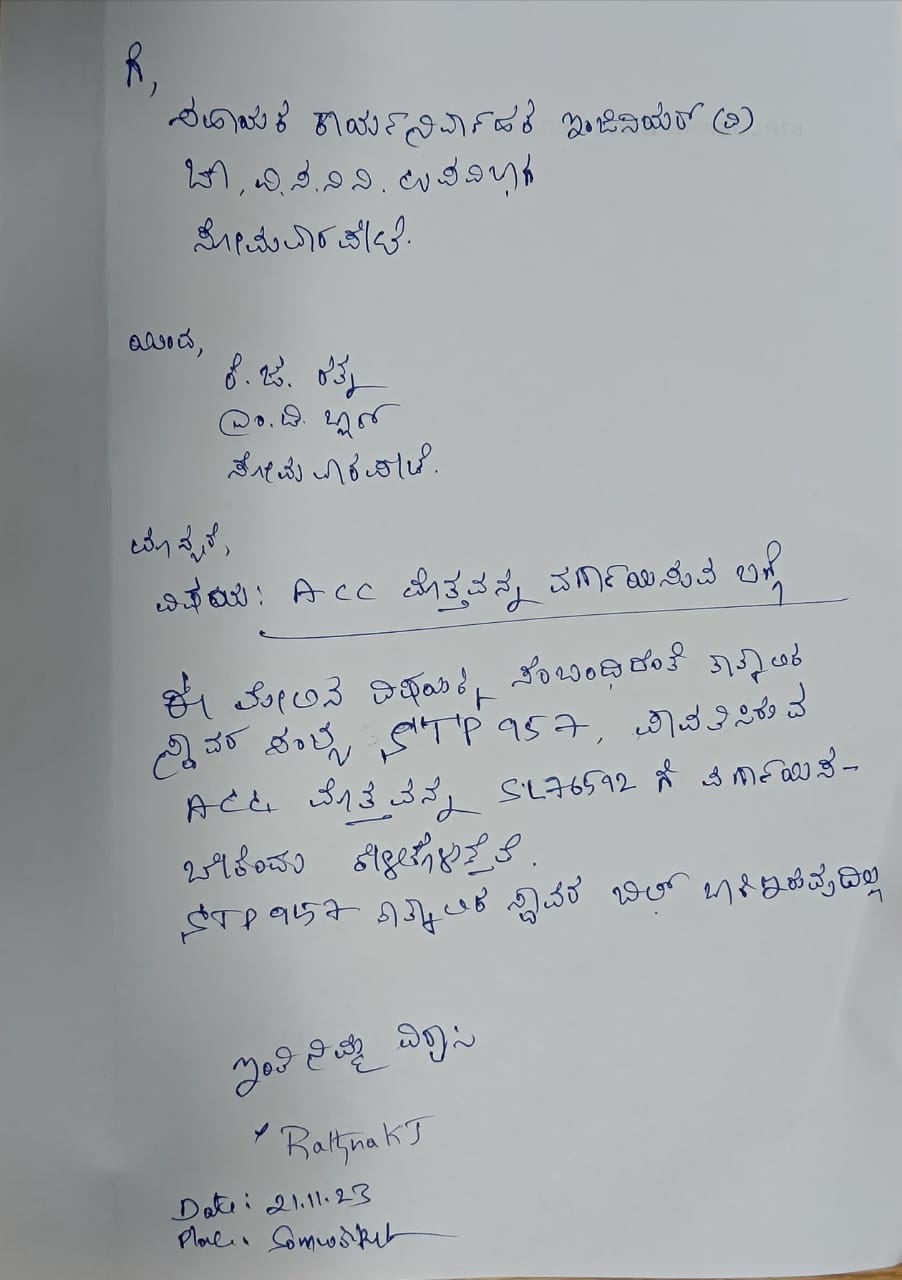 ಗೆ,
ಸಹಾಯಕ ಕಾರ್ಯನಿರ್ವಾಹಕ ಇಂಜಿನಿಯರ್ (ವಿ)
ಚಾ.ವಿ.ಸ.ನಿ.ನಿ. ಉಪವಿಭಾಗ
ಸೋಮವಾರಪೇಟೆ.
ಯಿಂದ,
ಕೆ.ಜೆ. ರತ್ನ
ಎಂ.ಡಿ. ಬ್ಲಾಕ್
ಸೋಮವಾರಪೇಟೆ.
ಮಾನ್ಯರೆ,
ವಿಷಯ: ACC ಮೊತ್ತವನ್ನು ವರ್ಗಾಯಿಸುವ ಬಗ್ಗೆ
ಈ ಮೇಲಿನ ವಿಷಯಕ್ಕೆ ಸಂಬಂಧಿಸಿದಂತೆ ತಾತ್ಕಾಲಿಕ
ಸ್ಥಾವರ ಸಂಖ್ಯೆ STP 957, ಪಾವತಿಸಿರುವ
ACC ಮೊತ್ತವನ್ನು SL76592 ಗೆ ವರ್ಗಾಯಿಸ-
ಬೇಕೆಂದು ಕೇಳಿಕೊಳ್ಳುತ್ತೇನೆ.
STP 957 ತಾತ್ಕಾಲಿಕ ಸ್ಥಾವರ ಬಿಲ್ ಬಾಕಿ ಇರುವುದಿಲ್ಲ
ಇಂತಿ ನಿಮ್ಮ ವಿಶ್ವಾಸಿ
Rathna K J
Date: 21.11.23
Place: